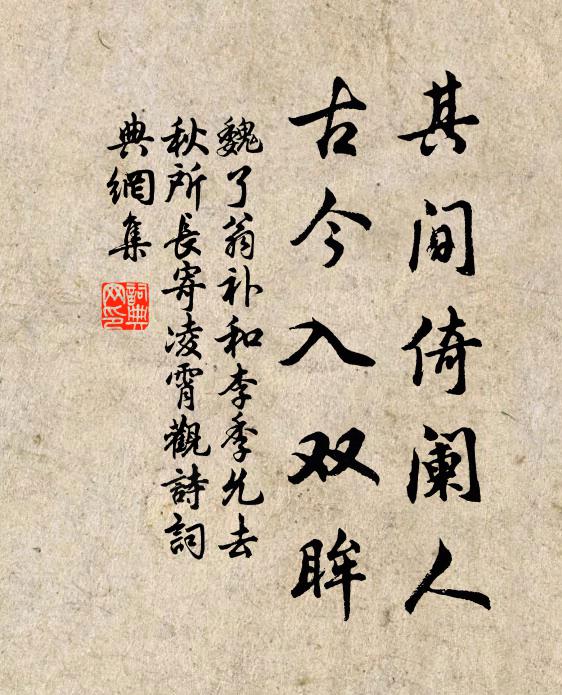 其间倚阑人
古今入双眸
魏了翁补和李季允去
秋所长寄凌霄觀詩詞
典網集
詞典網印